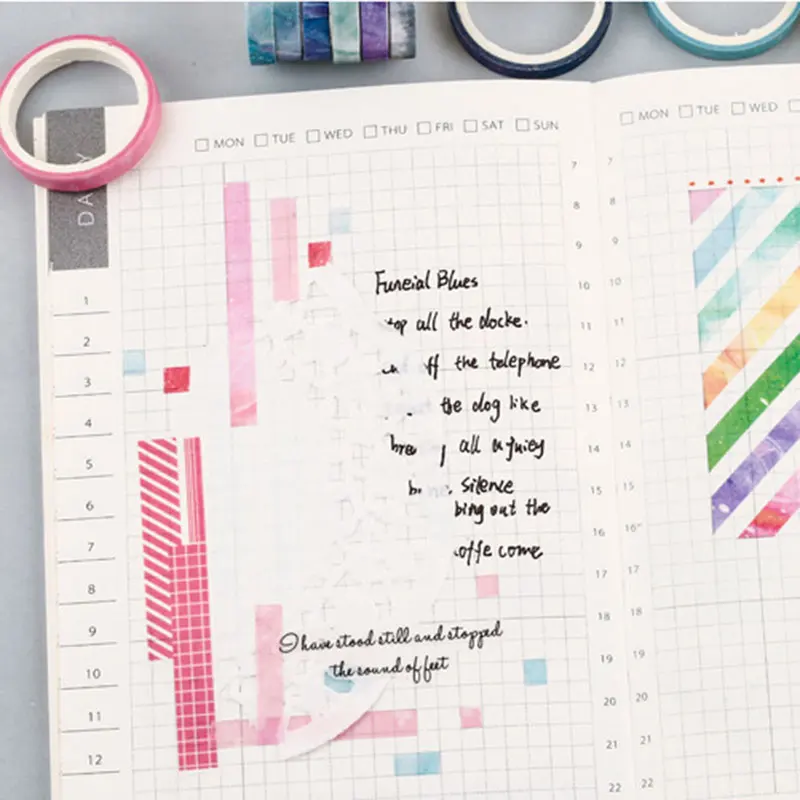 MON TUE WED THU FRI SAT SUN
MON TUE WED
DA
Y
7
8
9
10
11
12
13
14
15
16
17
18
19
20
21
22
7
8
9
10
11
12
13
14
15
16
17
18
19
20
21
22
1
2
3
4
5
6
7
8
9
10
11
12
Funeial Blues
top all the
the telephone
the dog like
all a
silence
bing out the
come
I have stood still and stopped
the sound of feet